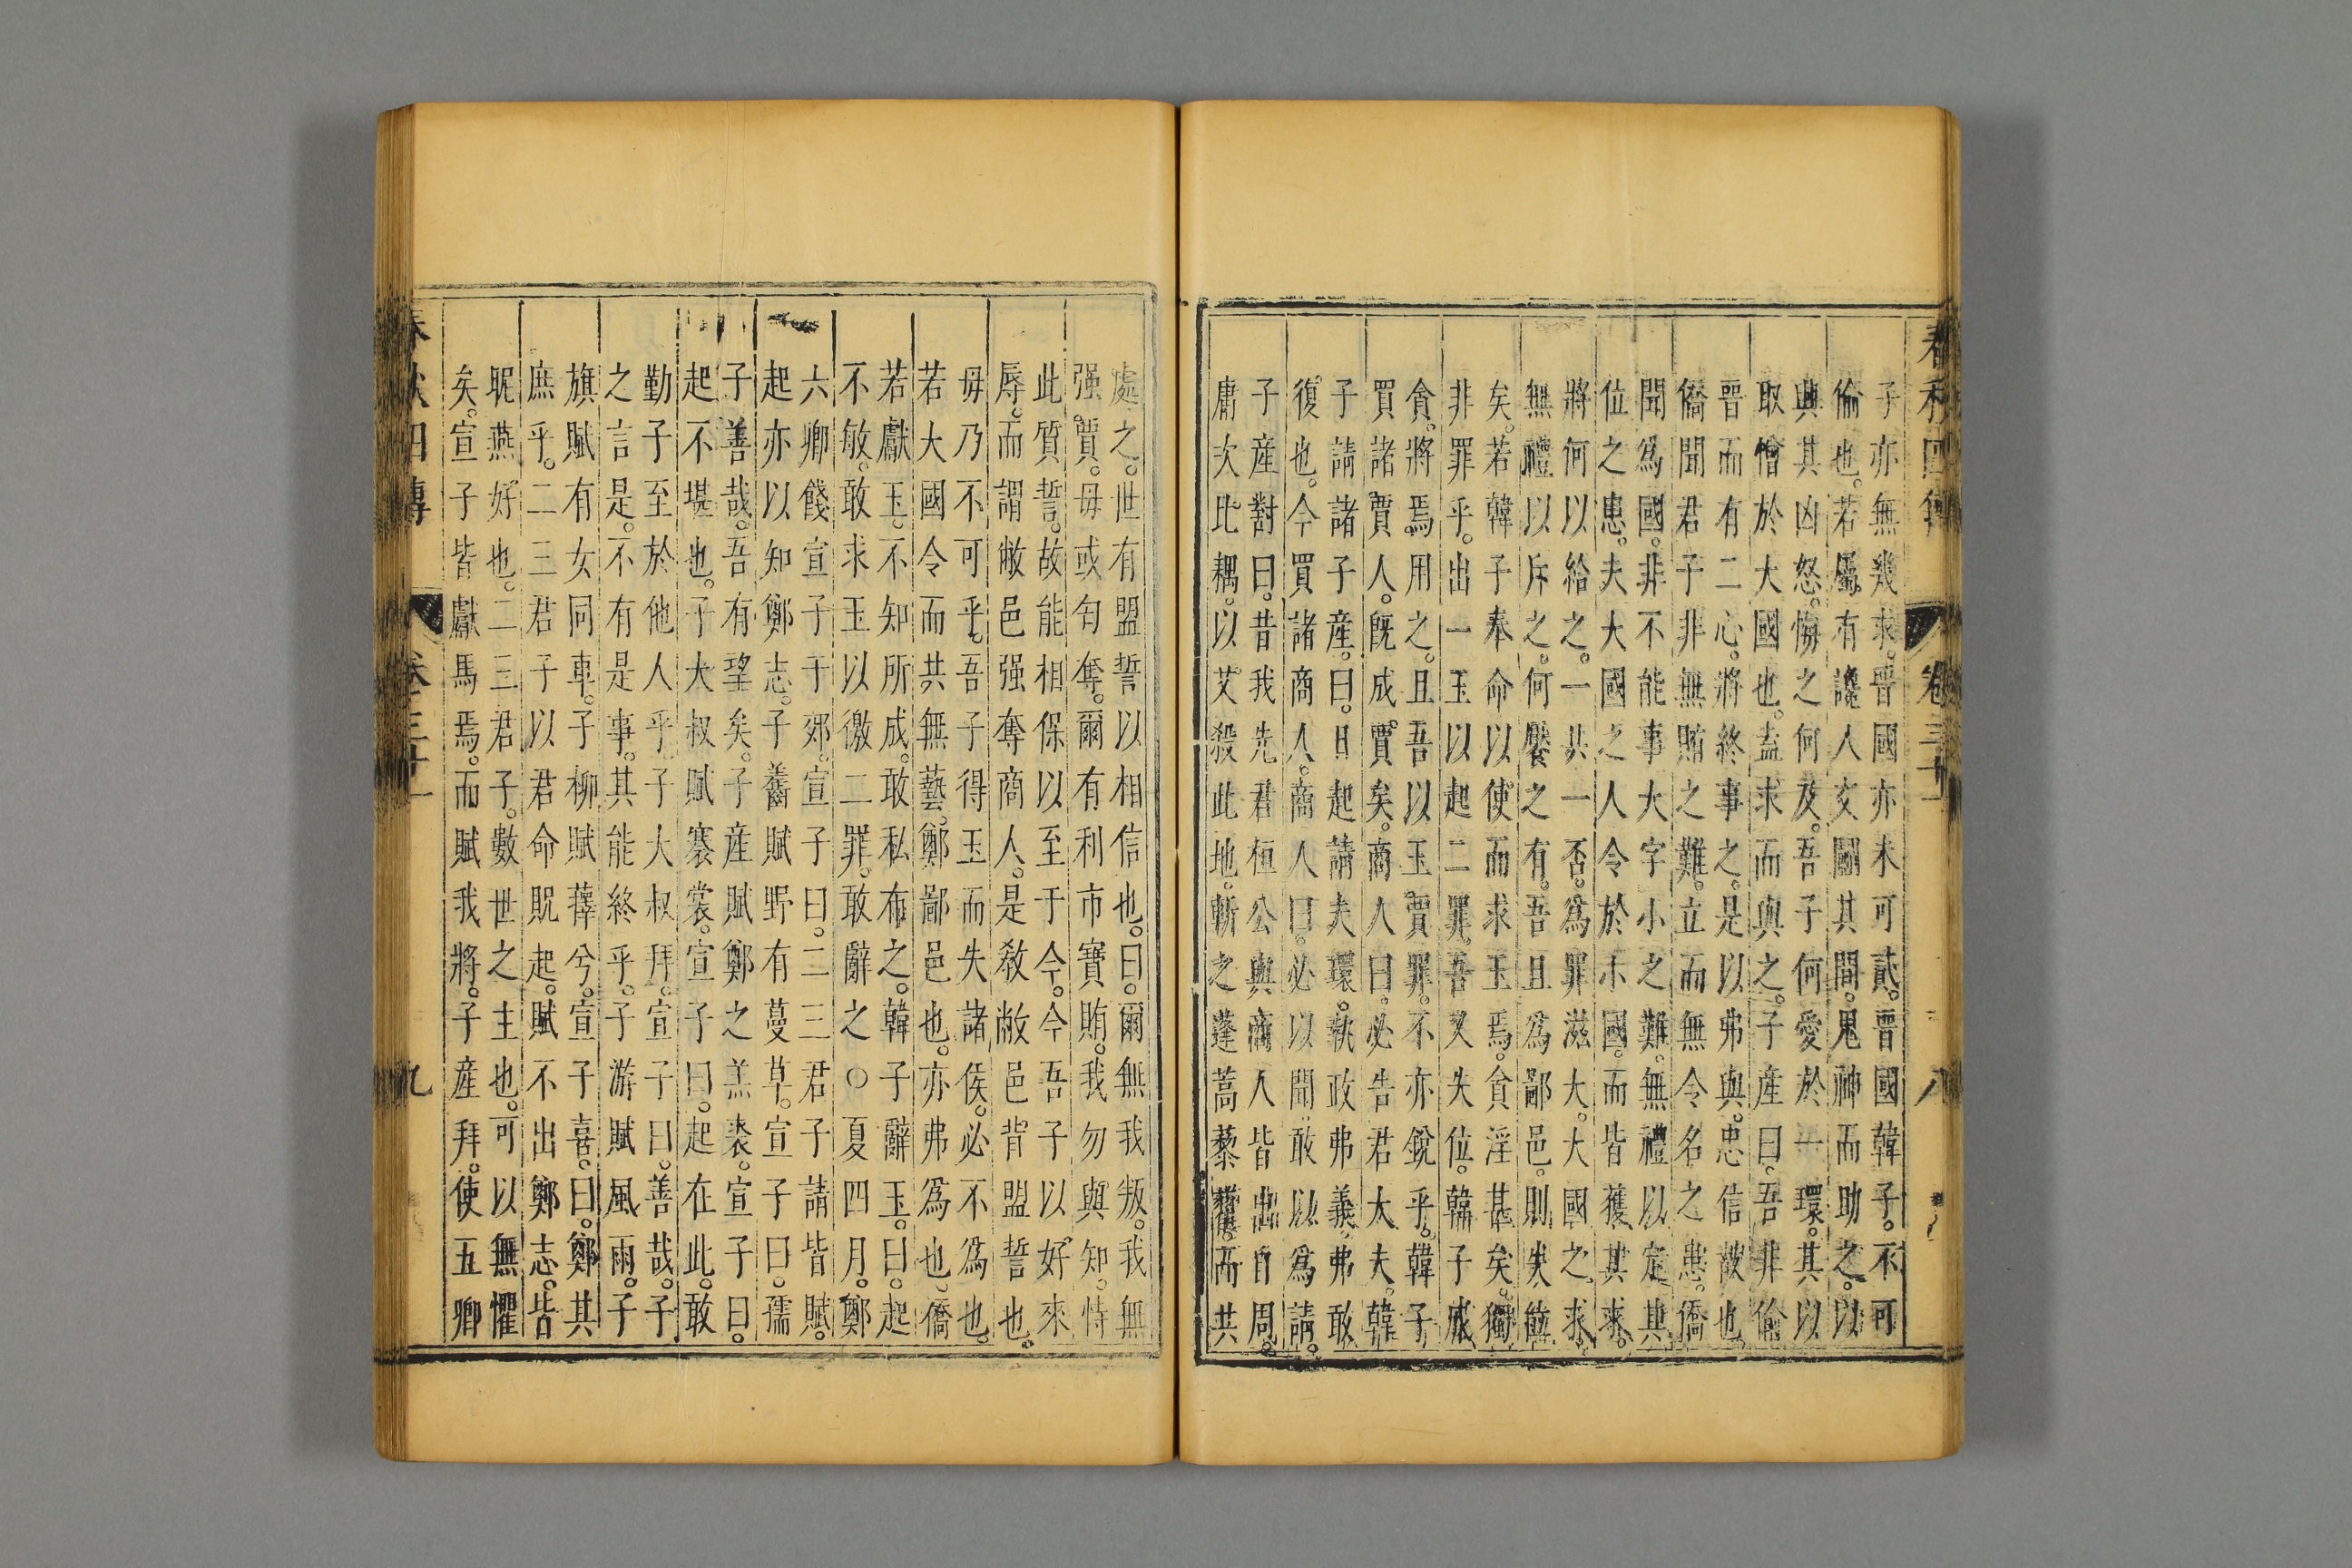 春秋四傳 卷三十一 八
子亦無幾求。晉國亦未可貳。晉國韓子。不可
偷也。若屬有讒人交鬭其間。鬼神而助之。以
興其凶怒。悔之何及。吾子何愛於一環。其以
取憎於大國也。盍求而與之。子產曰。吾非偷
晉而有二心。將終事之。是以弗與。忠信故也。
僑聞君子非無賄之難。立而無令名之患。僑
聞爲國。非不能事大字小之難。無禮以定其
位之患。夫大國之人令於小國。而皆獲其求。
將何以給之。一共一否。爲罪滋大。大國之求。
無禮以斥之。何饜之有。吾且爲鄙邑。則失位
矣。若韓子奉命以使而求玉焉。貪淫甚矣。獨
非罪乎。出一玉以起二罪。吾又失位。韓子成
貪。將焉用之。且吾以玉賈罪。不亦銳乎。韓子
買諸賈人。既成賈矣。商人曰。必告君大夫。韓
子請諸子產。曰。日起請夫環。執政弗義。弗敢
復也。今買諸商人。商人曰。必以聞。敢以爲請。
子產對曰。昔我先君桓公與商人皆出自周。
庸次比耦。以艾殺此地。斬之蓬蒿藜藋。而共
處之。世有盟誓以相信也。曰。爾無我叛。我無
强賈。毋或匄奪。爾有利市寶賄。我勿與知。恃
此質誓。故能相保以至于今。今吾子以好來
辱。而謂敝邑强奪商人。是敎敝邑背盟誓也。
毋乃不可乎。吾子得玉而失諸侯。必不爲也。
若大國令而共無藝。鄭鄙邑也。亦弗爲也。僑
若獻玉。不知所成。敢私布之。韓子辭玉。曰。起
不敏。敢求玉以徼二罪。敢辭之○夏四月。鄭
六卿餞宣子于郊。宣子曰。二三君子請皆賦。
起亦以知鄭志。子齹賦野有蔓草。宣子曰。孺
子善哉。吾有望矣。子產賦鄭之羔裘。宣子曰。
起不堪也。子大叔賦褰裳。宣子曰。起在此。敢
勤子至於他人乎。子大叔拜。宣子曰。善哉。子
之言是。不有是事。其能終乎。子游賦風雨。子
旗賦有女同車。子柳賦蘀兮。宣子喜。曰。鄭其
庶乎。二三君子以君命貺起。賦不出鄭志。皆
昵燕好也。二三君子。數世之主也。可以無懼
矣。宣子皆獻馬焉。而賦我將。子產拜。使五卿
春秋四傳 卷三十一 九